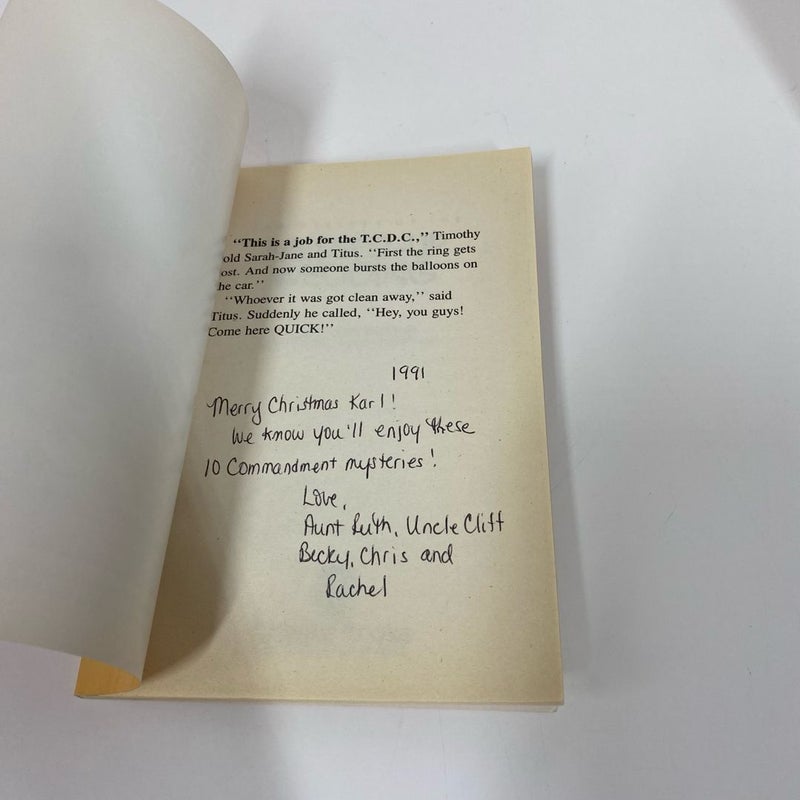 "This is a job for the T.C.D.C.," Timothy
old Sarah-Jane and Titus. "First the ring gets
ost. And now someone bursts the balloons on
he car."
"Whoever it was got clean away," said
Titus. Suddenly he called, "Hey, you guys!
Come here QUICK!"
1991
Merry Christmas Karl!
We know you'll enjoy these
10 Commandment mysteries!
Love,
Aunt Ruth, Uncle Cliff
Becky, Chris and
Rachel